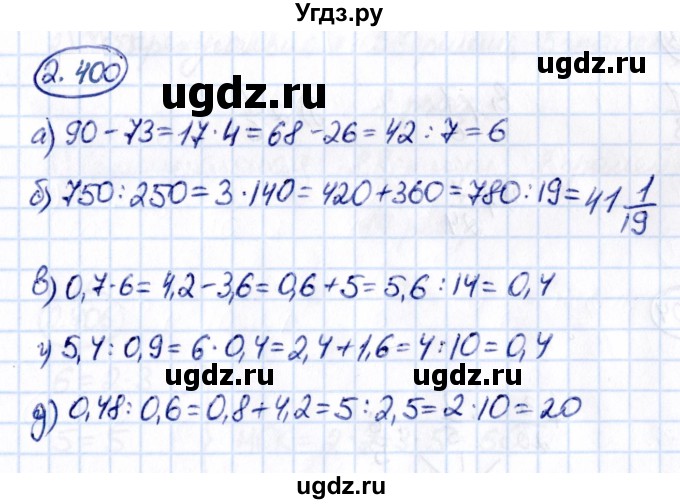 Угдз.ру
2.400
ugdz.ru ugdz.ru
а) 90 - 73 = 17 · 4 = 68 - 26 = 42 : 7 = 6
б) 750 : 250 = 3 · 140 = 420 + 360 = 780 : 19 = 41 1/19
в) 0,7 · 6 = 4,2 - 3,6 = 0,6 + 5 = 5,6 : 14 = 0,4
г) 5,4 : 0,9 = 6 · 0,4 = 2,4 + 1,6 = 4 : 10 = 0,4
ugdz.ru ugdz.ru
д) 0,48 : 0,6 = 0,8 + 4,2 = 5 : 2,5 = 2 · 10 = 20
ugdz.ru ugdz.ru